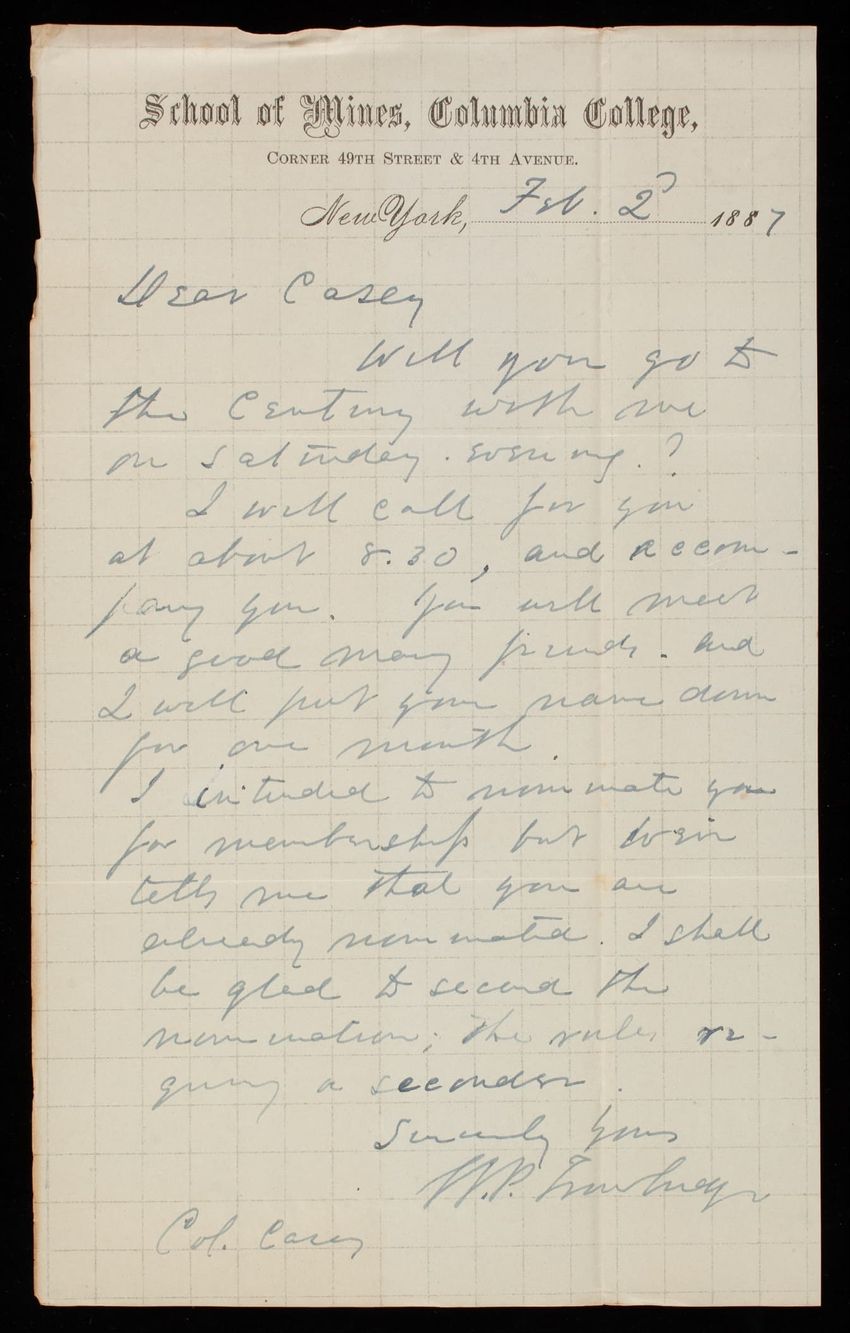 School of Mines, Columbia College,
Corner 49th Street & 4th Avenue.
New York, Feb. 2d 1887
Dear Casey
Will you go to
the Century with me
on Saturday evening?
I will call for you
at about 8.30, and accom-
pany you. You will meet
a good many friends. and
I will put your name down
for one month.
I intended to nominate you
for membership but Weir
tells me that you are
already nominated. I shall
be glad to second the
nomination; the rules re-
quiring a seconder.
Sincerely Yours
W.P. Trowbridge
Col. Casey